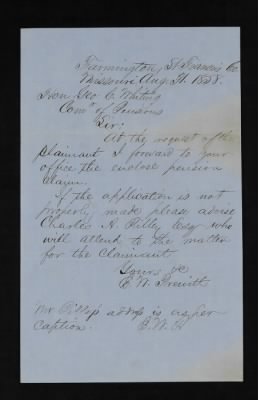 Farmington, St Francis Co.
Missouri Aug 1858.
Hon Geo C. Whiting
Comr of Pensions
Sir:
At the request of the
Claimant I forward to your
office the enclose pension
claim.
If the application is not
properly made please advise
Charles A. Esqr who
will attend to the matter
for the Claimant
Yours &c
E W
Mr address is as per
caption.
E. W.